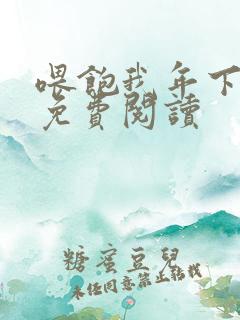 喂飽我 年下
免費閱讀
糖蜜豆兒
未經同意禁止轉載